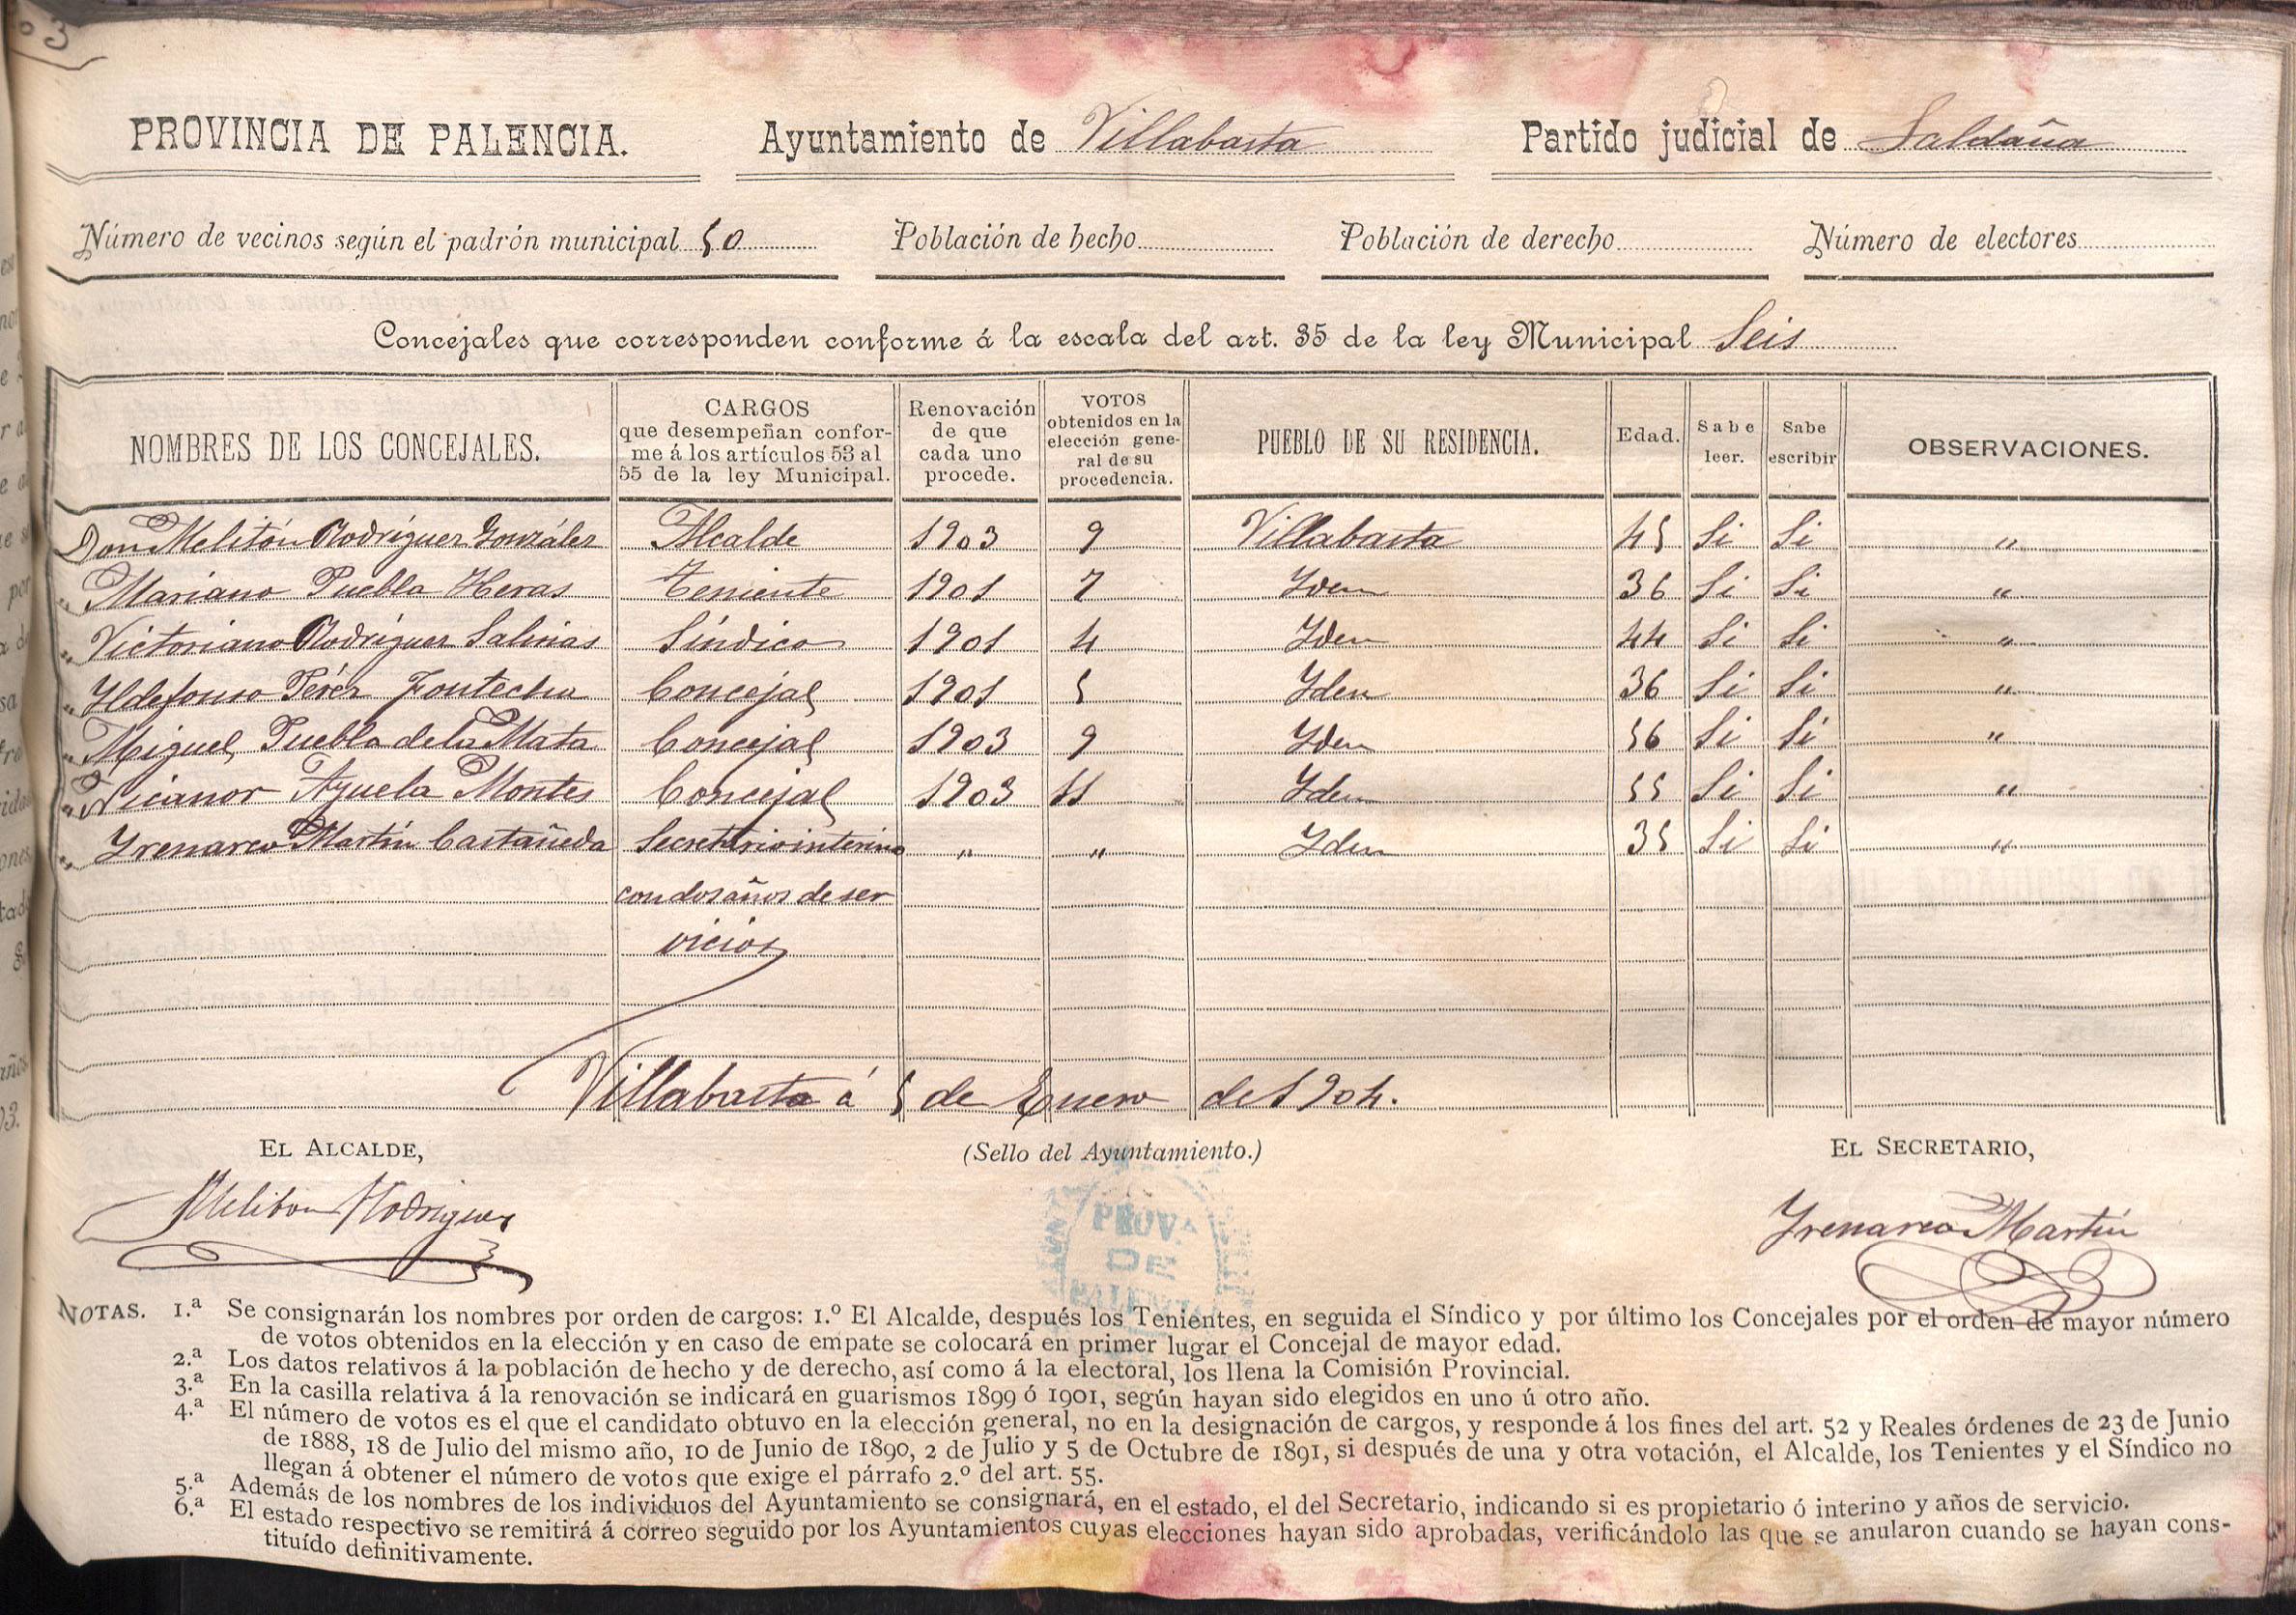 PROVINCIA DE PALENCIA. Ayuntamiento de Villabasta Partido judicial de Saldaña
Número de vecinos según el padrón municipal 50 Población de hecho Población de derecho Número de electores
Concejales que corresponden conforme á la escala del art. 35 de la ley Municipal Seis
NOMBRES DE LOS CONCEJALES. CARGOS que desempeñan confor-me á los artículos 53 al 55 de la ley Municipal. Renovación de que cada uno procede. VOTOS obtenidos en la elección gene-ral de su procedencia. PUEBLO DE SU RESIDENCIA. Edad. Sabe leer. Sabe escribir OBSERVACIONES.
Don Melitón Rodríguez González Alcalde 1903 9 Villabasta 45 Si Si "
" Mariano Puebla Heras Teniente 1901 7 Yden 36 Si Si "
" Victoriano Rodríguez Salinas Síndico 1901 4 Yden 44 Si Si "
" Yldefonso Pérez Fontecha Concejal 1901 5 Yden 36 Si Si "
" Miguel Puebla de la Mata Concejal 1903 9 Yden 56 Si Si "
" Nicanor Ayuela Montes Concejal 1903 11 Yden 55 Si Si "
" Yrenarco Martín Castañeda Secretario interino " " Yden 35 Si Si "
con dos años de ser
vicios
Villabasta á 5 de Enero de 1904.
EL ALCALDE, (Sello del Ayuntamiento.) EL SECRETARIO,
Meliton Rodriguez Yrenarco Martín
PROV.A
DE
PALENCIA
NOTAS. 1.ª Se consignarán los nombres por orden de cargos: 1.º El Alcalde, después los Tenientes, en seguida el Síndico y por último los Concejales por el orden de mayor número
de votos obtenidos en la elección y en caso de empate se colocará en primer lugar el Concejal de mayor edad.
2.ª Los datos relativos á la población de hecho y de derecho, así como á la electoral, los llena la Comisión Provincial.
3.ª En la casilla relativa á la renovación se indicará en guarismos 1899 ó 1901, según hayan sido elegidos en uno ú otro año.
4.ª El número de votos es el que el candidato obtuvo en la elección general, no en la designación de cargos, y responde á los fines del art. 52 y Reales órdenes de 23 de Junio
de 1888, 18 de Julio del mismo año, 10 de Junio de 1890, 2 de Julio y 5 de Octubre de 1891, si después de una y otra votación, el Alcalde, los Tenientes y el Síndico no
llegan á obtener el número de votos que exige el párrafo 2.º del art. 55.
5.ª Además de los nombres de los individuos del Ayuntamiento se consignará, en el estado, el del Secretario, indicando si es propietario ó interino y años de servicio.
6.ª El estado respectivo se remitirá á correo seguido por los Ayuntamientos cuyas elecciones hayan sido aprobadas, verificándolo las que se anularon cuando se hayan cons-
tituído definitivamente.